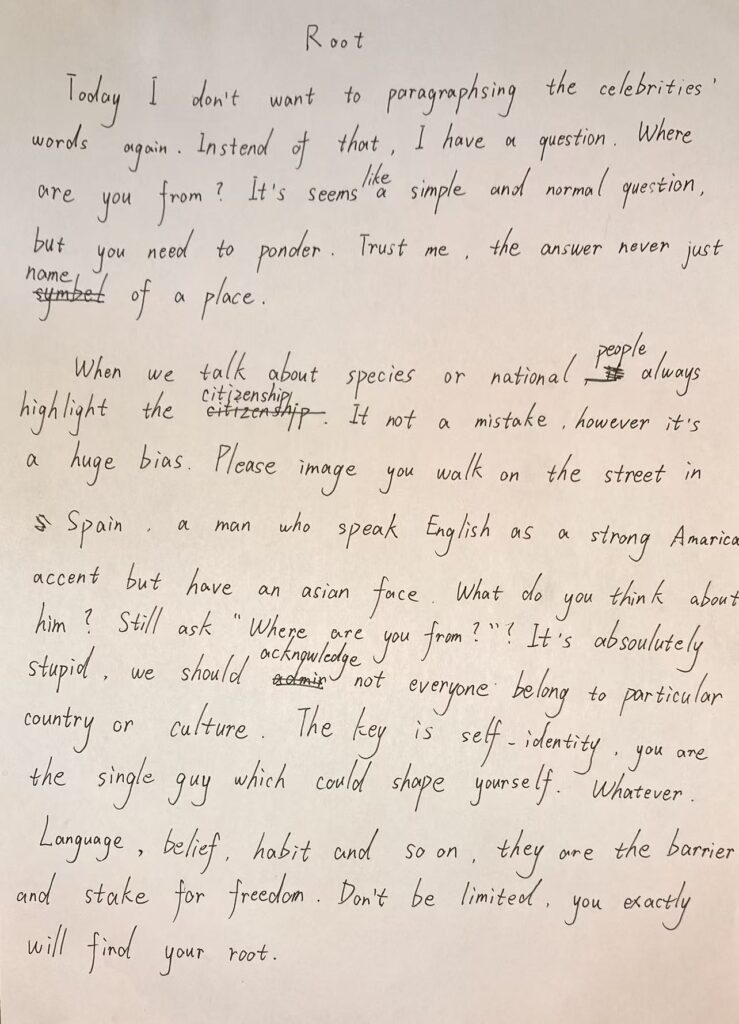 Root
Today I don't want to paragraphsing the celebrities'
words again. Instend of that, I have a question. Where
are you from? It's seems like a simple and normal question,
but you need to ponder. Trust me, the answer never just
name of a place.
When we talk about species or national, people always
highlight the citizenship. It not a mistake, however it's
a huge bias. Please image you walk on the street in
Spain, a man who speak English as a strong Amarica
accent but have an asian face. What do you think about
him? Still ask "Where are you from?"? It's absoulutely
stupid, we should acknowledge not everyone belong to particular
country or culture. The key is self-identity, you are
the single guy which could shape yourself. Whatever.
Language, belief, habit and so on, they are the barrier
and stake for freedom. Don't be limited, you exactly
will find your root.